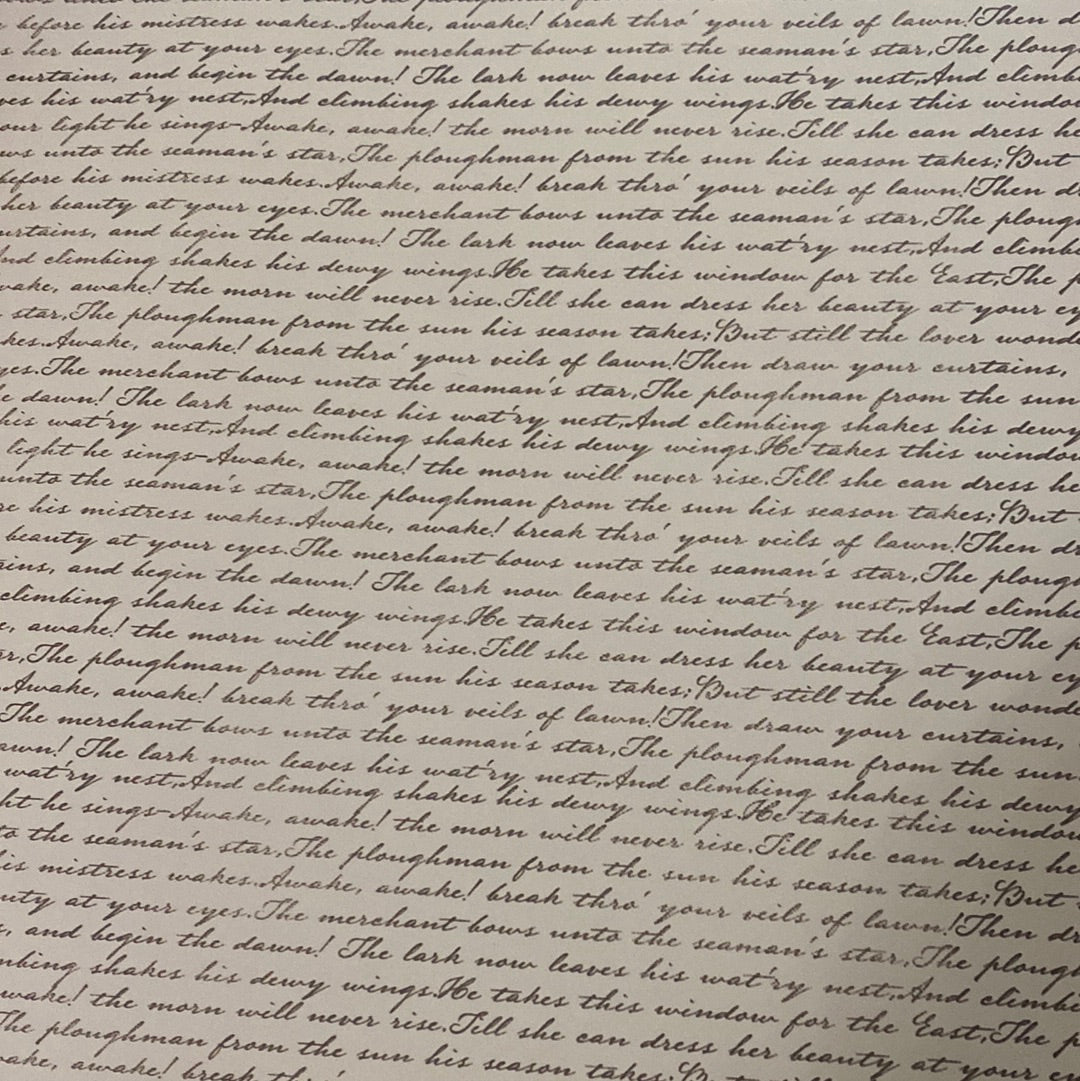 before his mistress wakes.Awake, awake! break thro' your veils of lawn!Then d
s her beauty at your eyes.The merchant bows unto the seaman's star,The ploug
curtains, and begin the dawn! The lark now leaves his wat'ry nest,And climb
ves his wat'ry nest,And climbing shakes his dewy wings.He takes this windo
our light he sings-Awake, awake! the morn will never rise.Till she can dress he
ws unto the seaman's star,The ploughman from the sun his season takes;But
before his mistress wakes.Awake, awake! break thro' your veils of lawn!Then d
her beauty at your eyes.The merchant bows unto the seaman's star,The ploug
urtains, and begin the dawn! The lark now leaves his wat'ry nest,And climb
And climbing shakes his dewy wings.He takes this window for the East,The p
wake, awake! the morn will never rise.Till she can dress her beauty at your ey
star,The ploughman from the sun his season takes;But still the lover wonde
kes.Awake, awake! break thro' your veils of lawn!Then draw your curtains,
yes.The merchant bows unto the seaman's star,The ploughman from the sun
e dawn! The lark now leaves his wat'ry nest,And climbing shakes his dewy
his wat'ry nest,And climbing shakes his dewy wings.He takes this windo
light he sings-Awake, awake! the morn will never rise.Till she can dress he
unto the seaman's star,The ploughman from the sun his season takes;But
re his mistress wakes.Awake, awake! break thro' your veils of lawn!Then dr
beauty at your eyes.The merchant bows unto the seaman's star,The plough
ains, and begin the dawn! The lark now leaves his wat'ry nest,And climb
climbing shakes his dewy wings.He takes this window for the East,The p
e, awake! the morn will never rise.Till she can dress her beauty at your ey
ar,The ploughman from the sun his season takes;But still the lover wonde
Awake, awake! break thro' your veils of lawn!Then draw your curtains,
The merchant bows unto the seaman's star,The ploughman from the sun
awn! The lark now leaves his wat'ry nest,And climbing shakes his dewy
wat'ry nest,And climbing shakes his dewy wings.He takes this windo
ht he sings-Awake, awake! the morn will never rise.Till she can dress he
to the seaman's star,The ploughman from the sun his season takes;But
is mistress wakes.Awake, awake! break thro' your veils of lawn!Then dr
uty at your eyes.The merchant bows unto the seaman's star,The plough
s, and begin the dawn! The lark now leaves his wat'ry nest,And climbi
mbing shakes his dewy wings.He takes this window for the East,The p
wake! the morn will never rise.Till she can dress her beauty at your ey
The ploughman from the sun his season takes;But still
ake, awake! break thro'